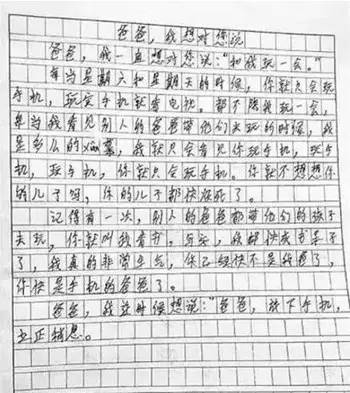 爸爸,我想对您说
爸爸,我一直想对您说:“和我玩一会。”
每当星期六和星期天的时候,你就只会玩
手机,玩完手机就看电视。都不陪我玩一会,
每当我看见别人的爸爸带他们去玩的时候,我
是多么的xian慕,我就只会看见你玩手机,玩手
机,玩手机,你就只会玩手机。你就不想想你
的儿子吗,你的儿子都快疯死了。
记得有一次,别人的爸爸都带他们的孩子
去玩,你就叫我看书。与实,我都快成书呆子
了,我真的非常生气,你已经快不是我爸了,
你快是手机的爸爸了。
爸爸,我这时候想说:“爸爸,放下手机,
立正稍息。